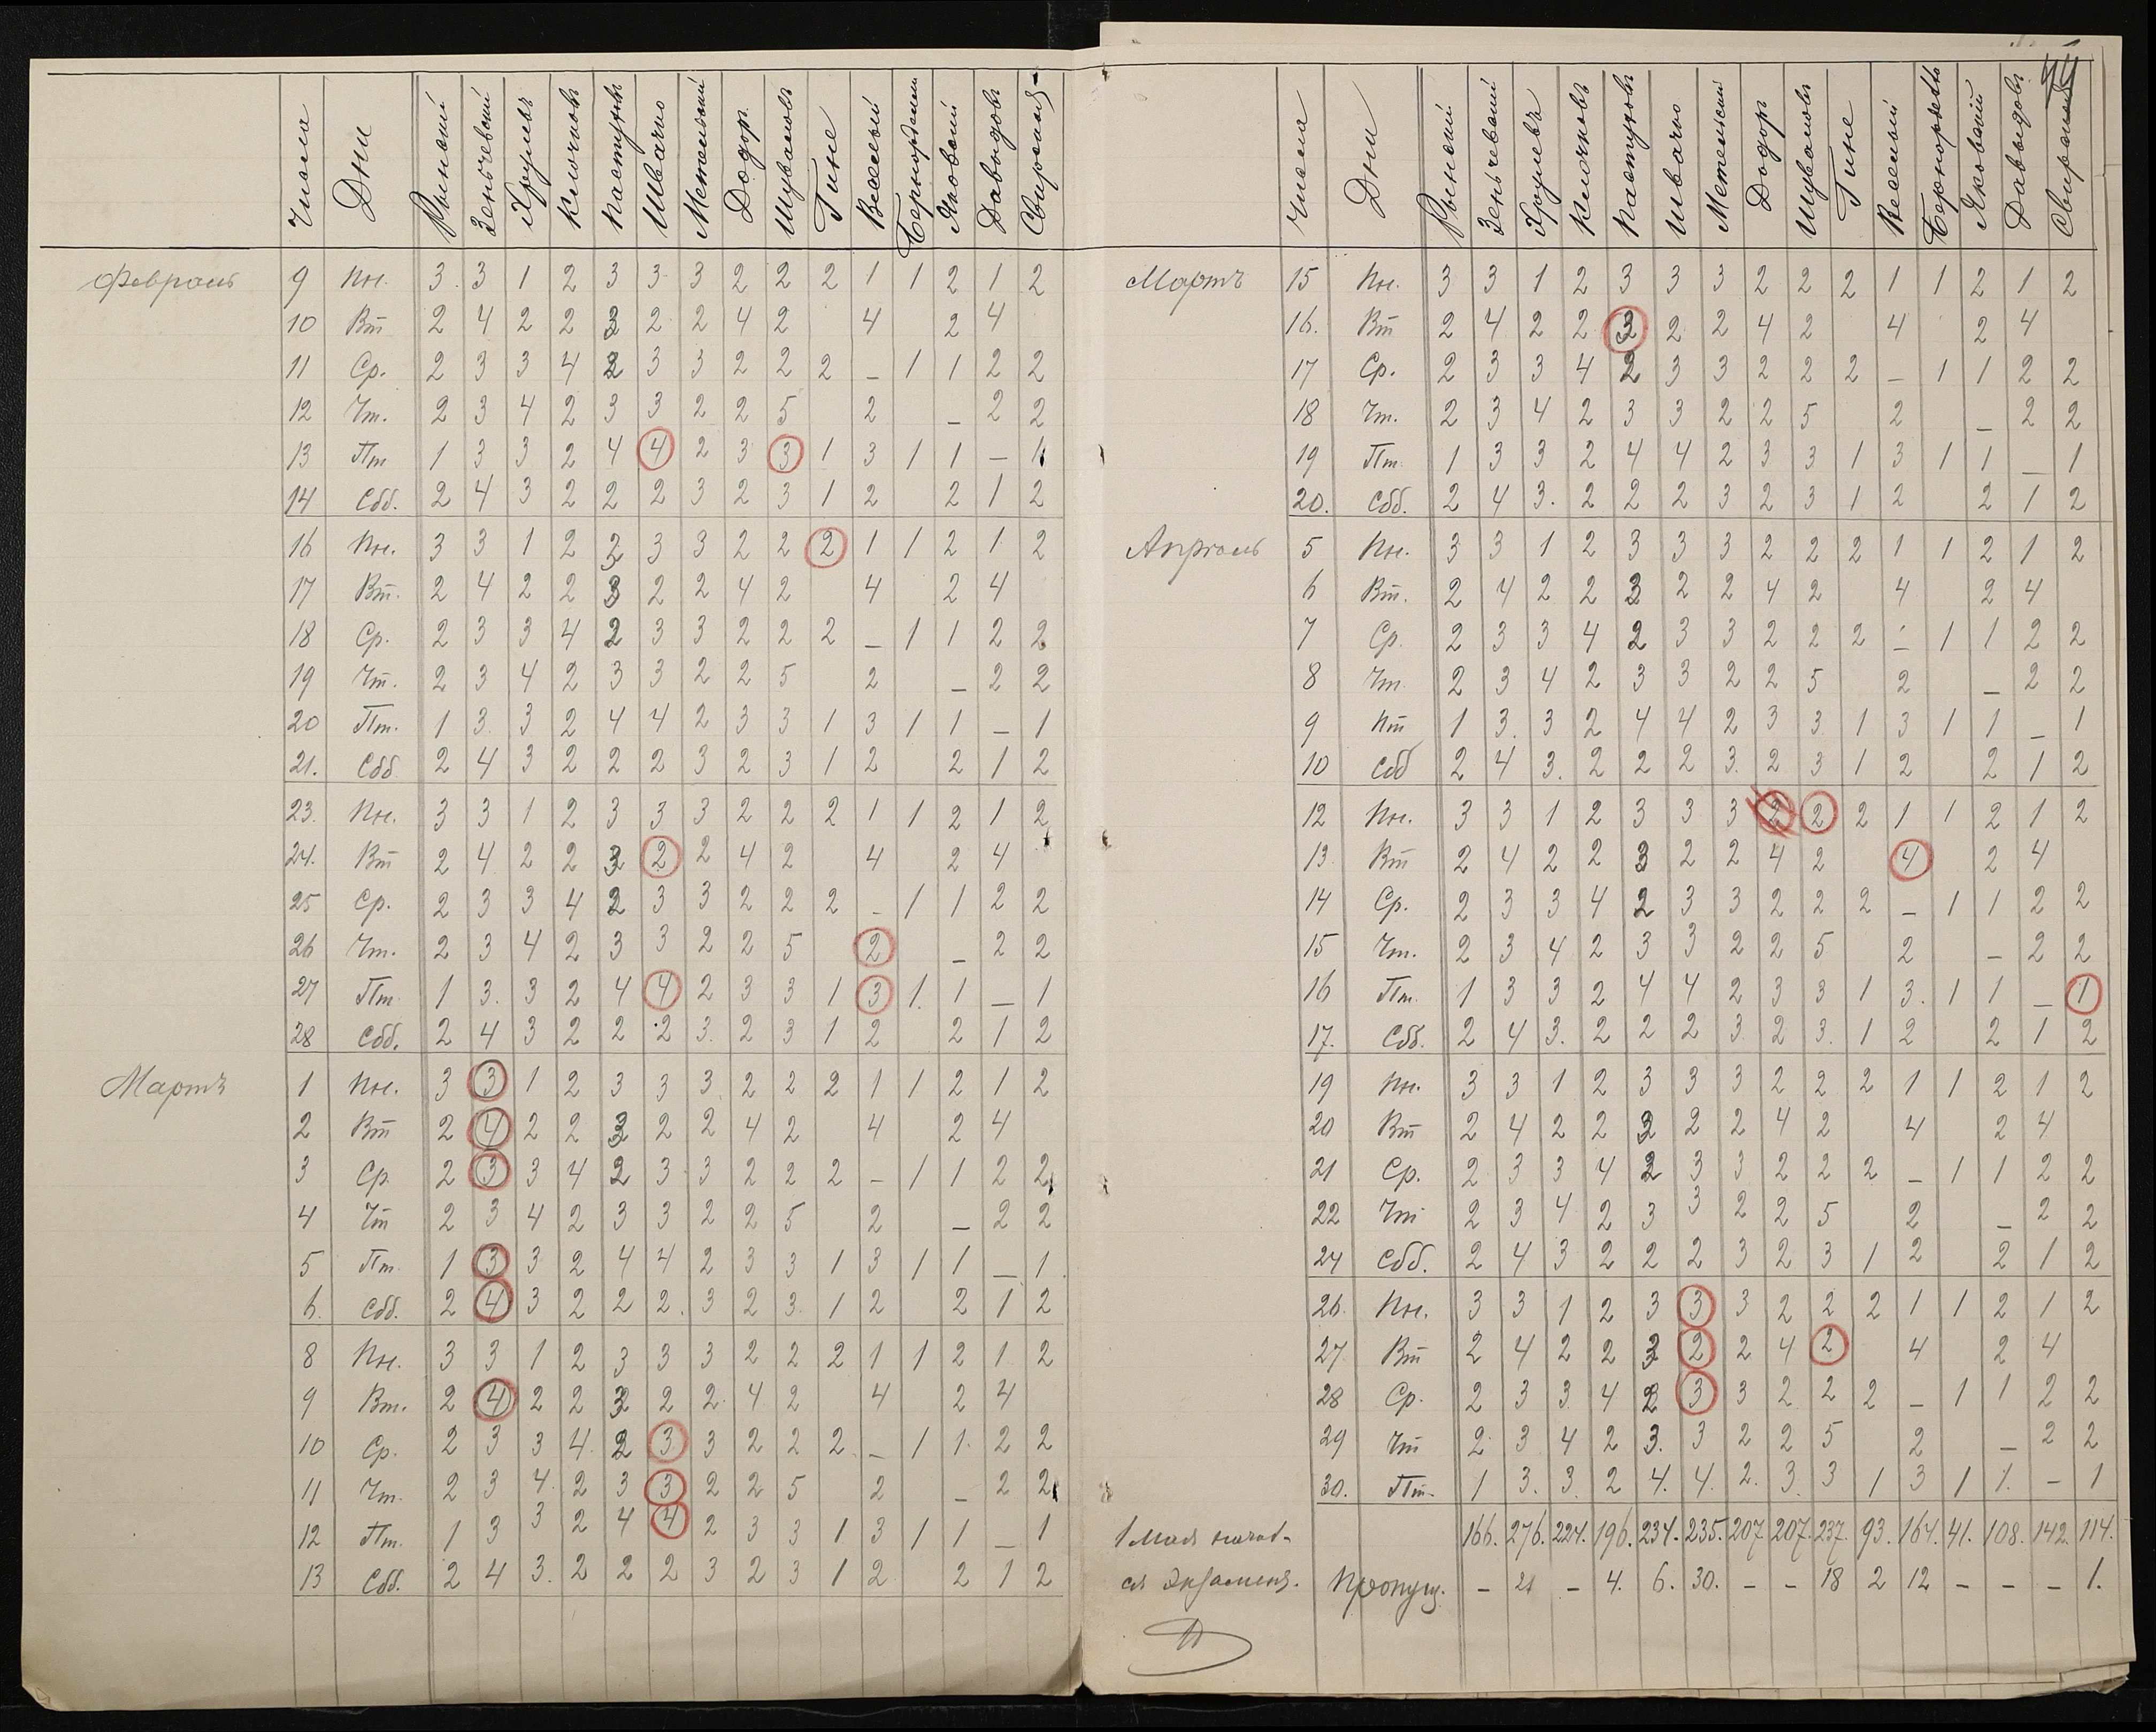 Числа Дни Рынскій Зеньчевскій Хрулевъ Клочковъ Пастуховъ Швачко Метельскій Додор. Шуваловъ Гине Веселый Яковскій Давыдовъ
Февраль 9 Пн. 3 3 1 2 3 3 3 2 2 2 1 1 2 1 2
10 Вт 2 4 2 2 3 2 2 4 2 4 2 4
11 Ср. 2 3 3 4 2 3 3 2 2 2 – 1 1 2 2
12 Чт. 2 3 4 2 3 3 2 2 5 2 – 2 2
13 Пт 1 3 3 2 4 4 2 3 3 1 3 1 1 – 1
14 Сбб. 2 4 3 2 2 2 3 2 3 1 2 2 1 2
16 Пн. 3 3 1 2 3 3 3 2 2 2 1 1 2 1 2
17 Вт. 2 4 2 2 3 2 2 4 2 4 2 4
18 Ср. 2 3 3 4 2 3 3 2 2 2 – 1 1 2 2
19 Чт. 2 3 4 2 3 3 2 2 5 2 – 2 2
20 Пт. 1 3 3 2 4 4 2 3 3 1 3 1 1 – 1
21. Сбб 2 4 3 2 2 2 3 2 3 1 2 2 1 2
23. Пн. 3 3 1 2 3 3 3 2 2 2 1 1 2 1 2
24. Вт 2 4 2 2 3 2 2 4 2 4 2 4
25 Ср. 2 3 3 4 2 3 3 2 2 2 – 1 1 2 2
26 Чт. 2 3 4 2 3 3 2 2 5 2 – 2 2
27 Пт. 1 3. 3 2 4 4 2 3 3 1 3 1. 1 – 1
28 Сбб. 2 4 3 2 2 2 3. 2 3 1 2 2 1 2
Мартъ 1 Пн. 3 3 1 2 3 3 3 2 2 2 1 1 2 1 2
2 Вт 2 4 2 2 3 2 2 4 2 4 2 4
3 Ср. 2 3 3 4 2 3 3 2 2 2 – 1 1 2 2
4 Чт 2 3 4 2 3 3 2 2 5 2 – 2 2
5 Пт. 1 3 3 2 4 4 2 3 3 1 3 1 1 – 1
6. Сбб. 2 4 3 2 2 2. 3 2 3. 1 2 2 1 2
8 Пн. 3 3 1 2 3 3 3 2 2 2 1 1 2 1 2
9 Вт. 2 4 2 2 3 2 2 4 2 4 2 4
10 Ср. 2 3 3 4. 2 3 3 2 2 2 – 1 1 2 2
11 Чт. 2 3 4 2 3 3 2 2 5 2 – 2 2
12 Пт. 1 3 3 2 4 4 2 3 3 1 3 1 1 – 1
13 Сбб. 2 4 3. 2 2 2 3 2 3 1 2 2 1 2
44
Числа Дни Рынскій Зеньчевскій Хрулевъ Клочковъ Пастуховъ Швачко Метельскій Додор Шуваловъ Гине Веселый Яковскій Давыдовъ
Мартъ 15 Пн. 3 3 1 2 3 3 3 2 2 2 1 1 2 1 2
16. Вт 2 4 2 2 3 2 2 4 2 4 2 4
17 Ср. 2 3 3 4 2 3 3 2 2 2 – 1 1 2 2
18 Чт. 2 3 4 2 3 3 2 2 5 2 – 2 2
19 Пт. 1 3 3 2 4 4 2 3 3 1 3 1 1 – 1
20. Сбб. 2 4 3. 2 2 2 3 2 3 1 2 2 1 2
Апрѣль 5 Пн. 3 3 1 2 3 3 3 2 2 2 1 1 2 1 2
6 Вт. 2 4 2 2 3 2 2 4 2 4 2 4
7 Ср. 2 3 3 4 2 3 3 2 2 2 – 1 1 2 2
8 Чт 2 3 4 2 3 3 2 2 5 2 – 2 2
9 Пт 1 3. 3 2 4 4 2 3 3 1 3 1 1 – 1
10 Сбб 2 4 3. 2 2 2 3. 2 3 1 2 2 1 2
12 Пн. 3 3 1 2 3 3 3 2 2 2 1 1 2 1 2
13 Вт 2 4 2 2 3 2 2 4 2 4 2 4
14 Ср. 2 3 3 4 2 3 3 2 2 2 – 1 1 2 2
15 Чт. 2 3 4 2 3 3 2 2 5 2 – 2 2
16 Пт. 1 3 3 2 4 4 2 3 3 1 3. 1 1 – 1
17. Сбб. 2 4 3. 2 2 2 3 2 3. 1 2 2 1 2
19 Пн. 3 3 1 2 3 3 3 2 2 2 1 1 2 1 2
20 Вт 2 4 2 2 3 2 2 4 2 4 2 4
21 Ср. 2 3 3 4 2 3 3 2 2 2 – 1 1 2 2
22 Чт 2 3 4 2 3 3 2 2 5 2 – 2 2
24 Сбб. 2 4 3 2 2 2 3 2 3 1 2 2 1 2
26. Пн. 3 3 1 2 3 3 3 2 2 2 1 1 2 1 2
27 Вт 2 4 2 2 3 2 2 4 2 4 2 4
28 Ср. 2 3 3 4 2 3 3 2 2 2 – 1 1 2 2
29 Чт 2 3 4 2 3. 3 2 2 5 2 – 2 2
30. Пт. 1 3. 3. 2 4. 4. 2. 3. 3 1 3 1 1. – 1
1 Мая начал- 166. 276. 224. 196. 234. 235. 207 207. 237. 93. 164. 41. 108. 142. 114.
ся экзамены. Пропущ. – 21 – 4. 6. 30. – – 18 2 12 – – – 1.